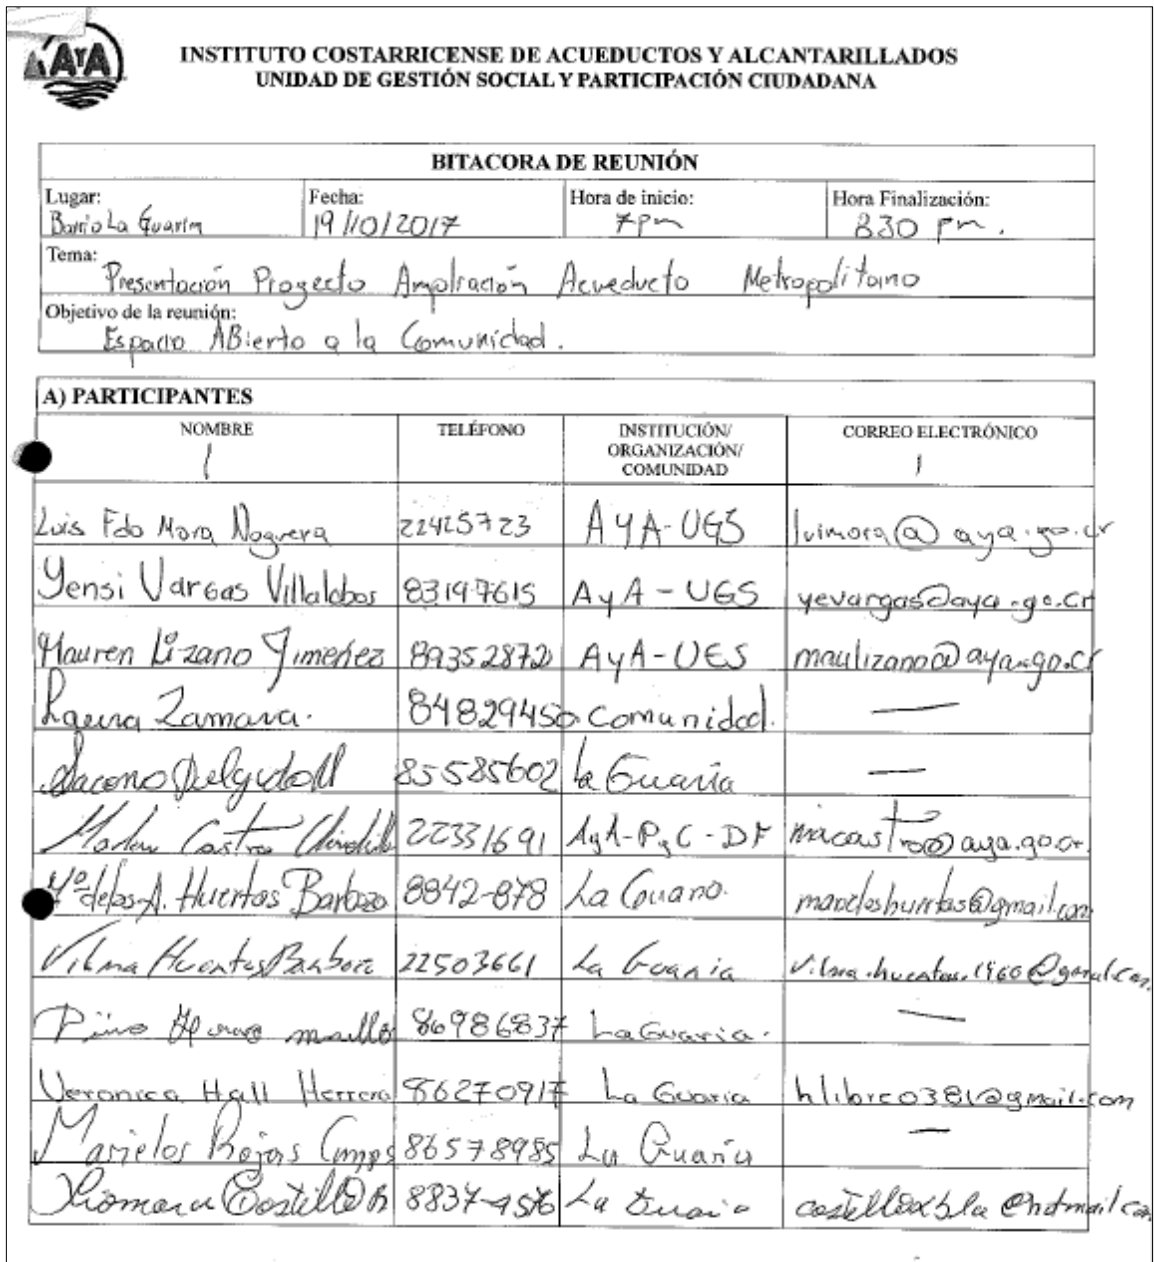 AyA
INSTITUTO COSTARRICENSE DE ACUEDUCTOS Y ALCANTARILLADOS
UNIDAD DE GESTIÓN SOCIAL Y PARTICIPACIÓN CIUDADANA
BITACORA DE REUNIÓN
Lugar: Fecha: Hora de inicio: Hora Finalización:
Barrio La Guaria 19/10/2017 7pm 830 pm.
Tema:
Presentación Proyecto Ampliación Acueducto Metropolitano
Objetivo de la reunión:
Espacio ABierto a la Comunidad.
A) PARTICIPANTES
NOMBRE TELÉFONO INSTITUCIÓN/ CORREO ELECTRÓNICO
ORGANIZACIÓN/
COMUNIDAD
Luis Fdo Mora Noguera 22425723 AYA-UGS luimora@aya.go.cr
Yensi Vargas Villalobos 83197615 AyA-UGS yevargas@aya.go.cr
Mauren Lizano Jimenez 89352872 AyA-UGS maulizano@aya.go.cr
Laura Zamora. 84829450 Comunidad. —
85585602 La Guaria —
Castro 22331691 AyA-PyC-DF macastro@aya.go.cr
Mª de los A. Huertas Barboza 8842-878 La Guaria.
Vilma Huertas Barboza 22503661 La Guaria
86986837 La Guaria. —
Veronica Hall Herrera 86270917 La Guaria hlibre0381@gmail.com
Marielos Rojas Campos 86578985 La Guaria —
Xiomara Castillo 8837-9576 La Guaria